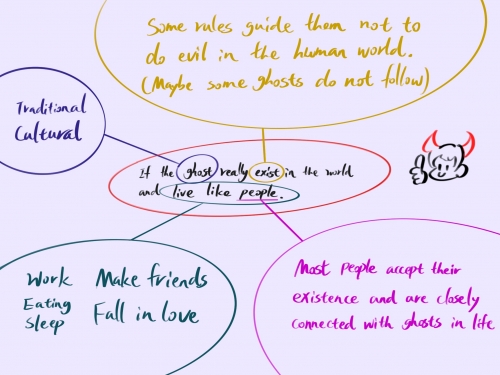 Some rules guide them not to
do evil in the human world.
(Maybe some ghosts do not follow)
Traditional
Cultural
If the ghost really exist in the world
and live like people.
Work Make friends
Eating
Sleep Fall in love
Most people accept their
existence and are closely
connected with ghosts in life